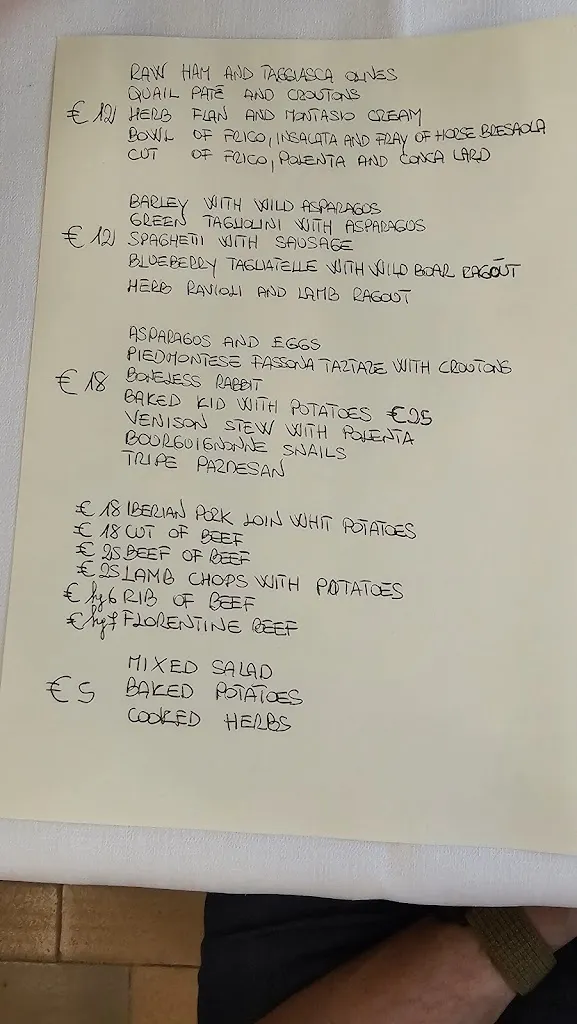 RAW HAM AND TAGGIASCA OLIVES
QUAIL PATÉ AND CROUTONS
€ 12 HERB FLAN AND MONTASIO CREAM
BOWL OF FRICO, INSALATA AND FRAY OF HORSE BRESAOLA
CUT OF FRICO, POLENTA AND CONCA LARD
BARLEY WITH WILD ASPARAGOS
GREEN TAGLIOLINI WITH ASPARAGUS
€ 12 SPAGHETTI WITH SAUSAGE
BLUEBERRY TAGLIATELLE WITH WILD BOAR RAGOUT
HERB RAVIOLI AND LAMB RAGOUT
ASPARAGOS AND EGGS
PIEDMONTESE FASSONA TARTARE WITH CROUTONS
€ 18 BONELESS RABBIT
BAKED KID WITH POTATOES €25
VENISON STEW WITH POLENTA
BOURGUIGNONNE SNAILS
TRIPE PARMESAN
€ 18 IBERIAN PORK LOIN WHIT POTATOES
€ 18 CUT OF BEEF
€ 25 BEEF OF BEEF
€ 25 LAMB CHOPS WITH POTATOES
€ hg 6 RIB OF BEEF
€ hg 7 FLORENTINE BEEF
MIXED SALAD
€ 5 BAKED POTATOES
COOKED HERBS